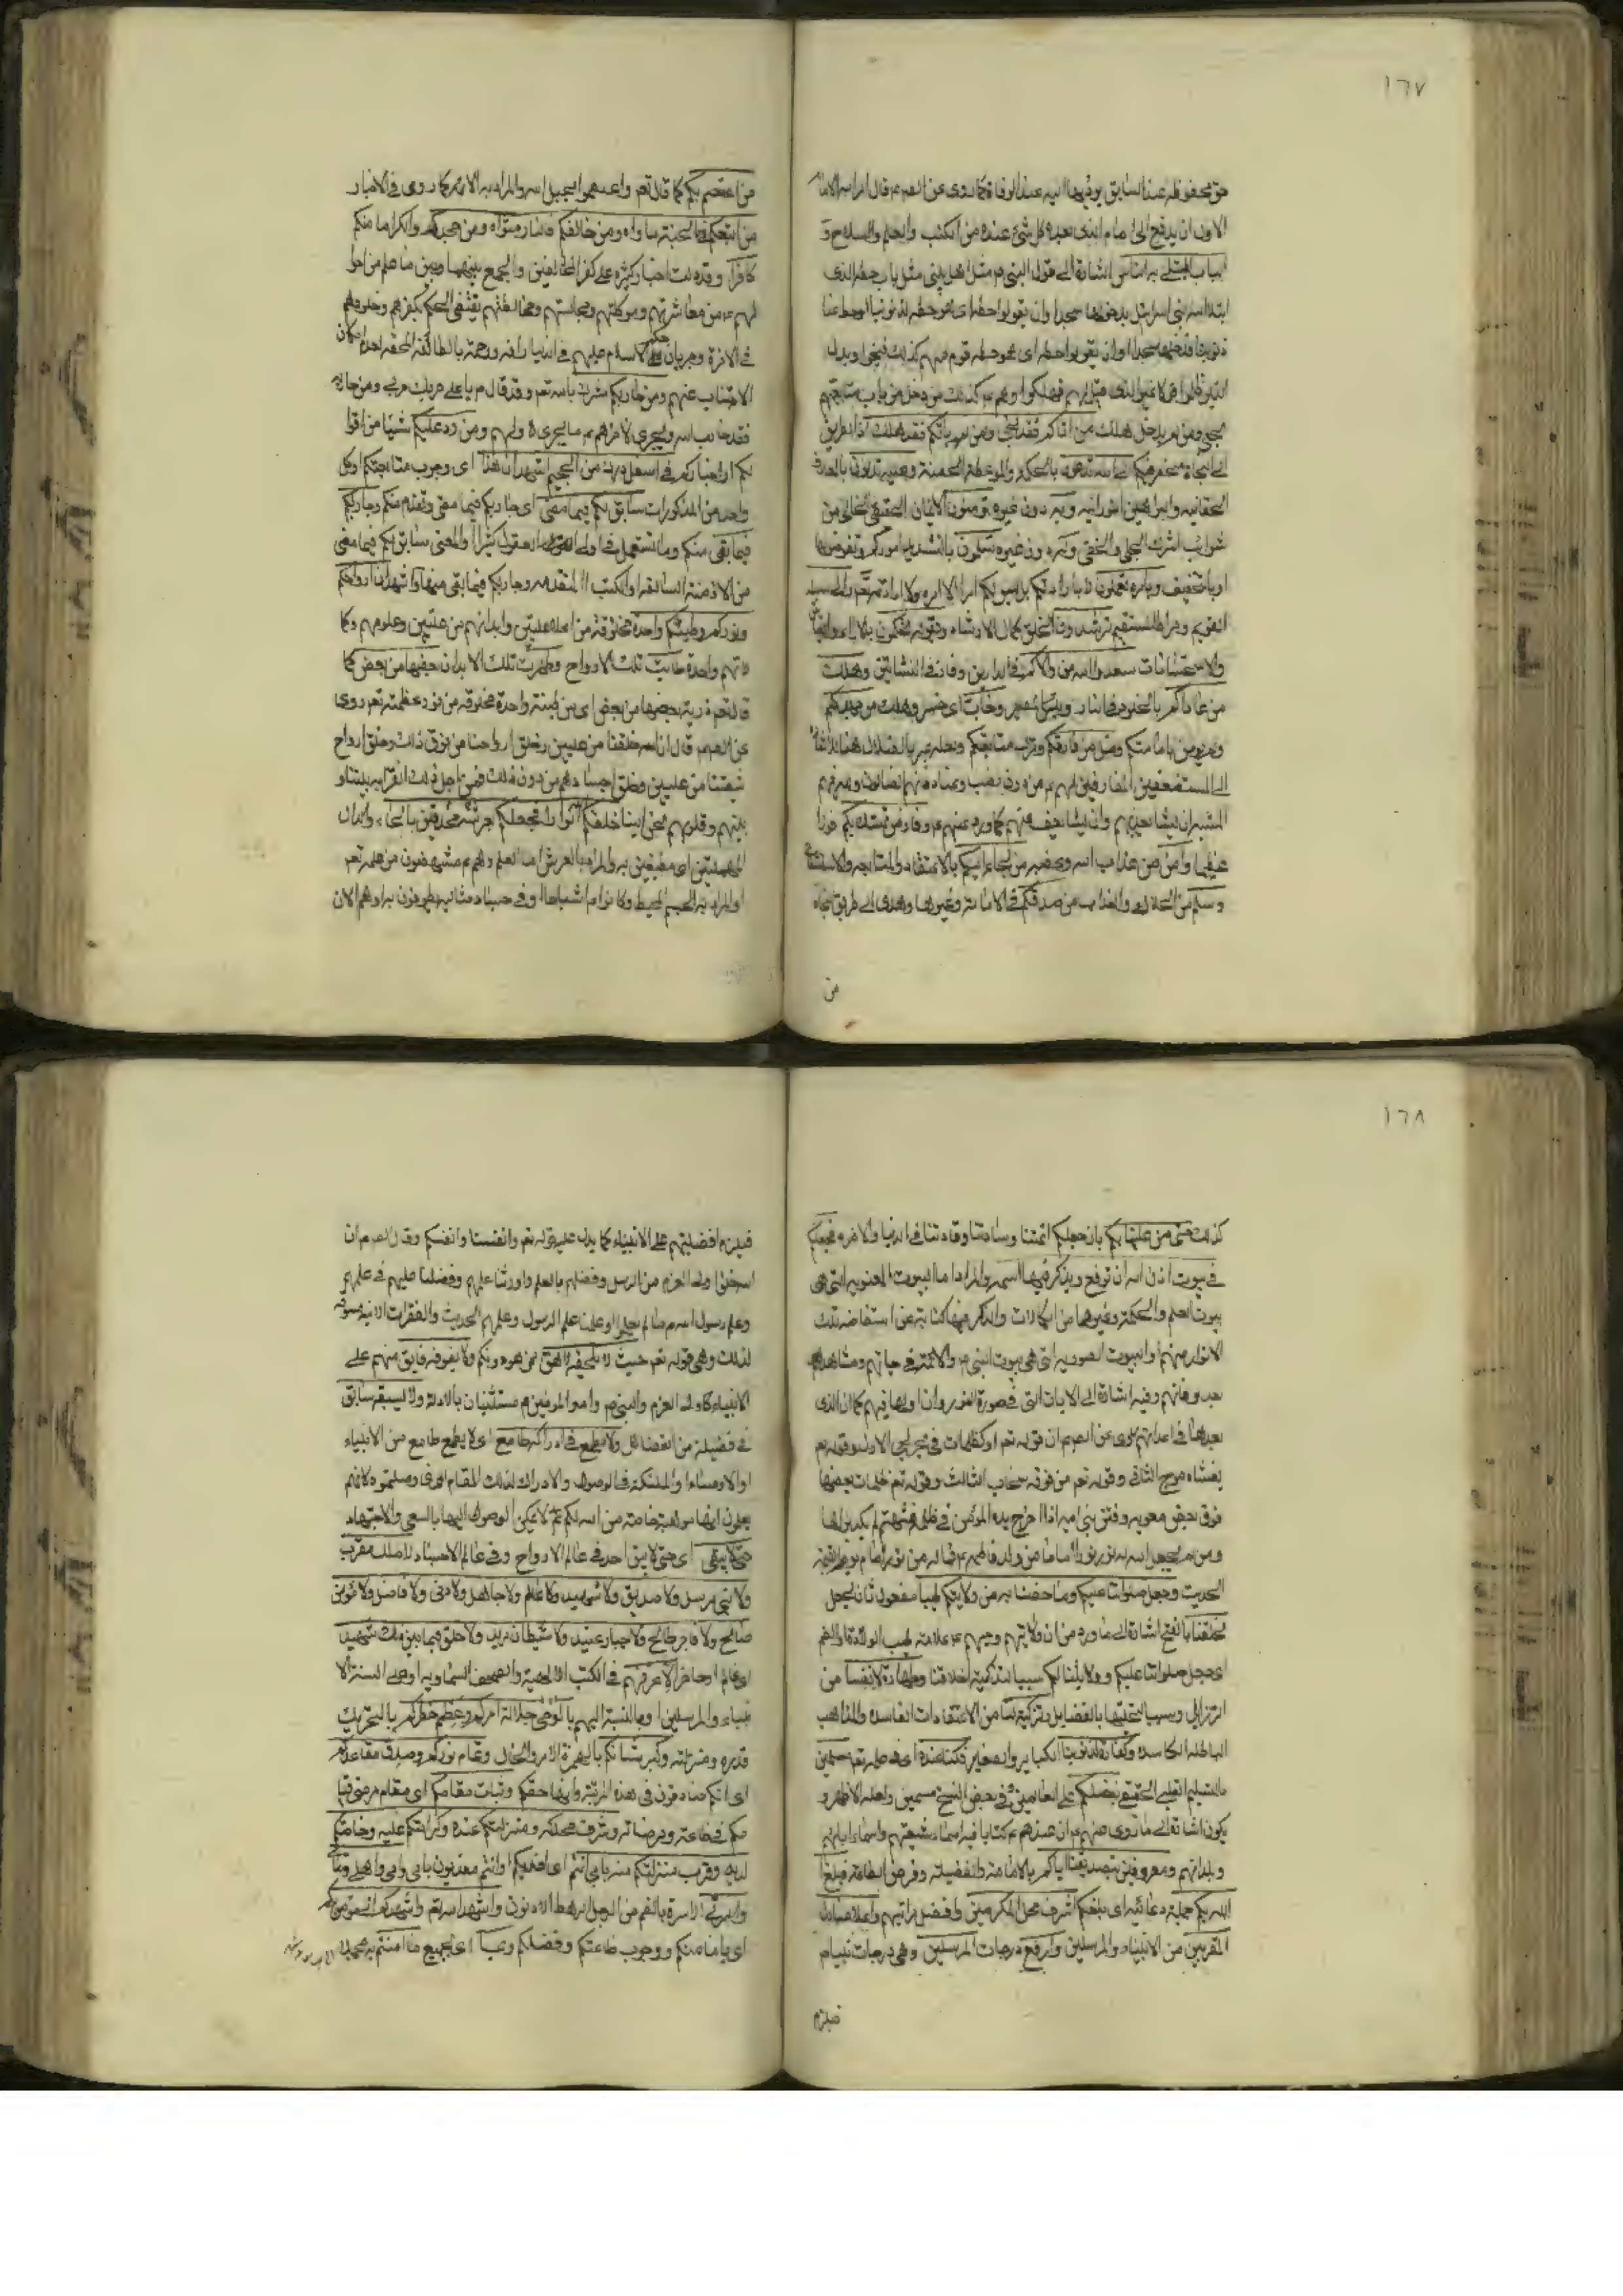 ١٦٧
حق محفوظه عند السابق يوديها اليه عند الوفاة كما روى عن الصم قال امر الله الامام
الاول ان يدفع الى الامام الذى بعده كل شئ عنده من الكتب والعلم والسلاح و
الباب المبتلى به الناس اشارة الى قول النبى ص مثل اهل بيتى مثل باب حطه الذى
ابتلا الله بنى اسرائيل بدخولها سجدا وان يقولوا حطه اى هو حطه لذنوبنا
ذنوبنا فدخلوها سجدا وان يقولوا حطه اى هو حطه قوم منهم كذلك فنجوا وبدل
الذين ظلموا قولا غير الذى قيل لهم فهلكوا وهم ع كذلك من دخل من باب متابعتهم
نجى ومن لم يدخل هلك من اتاكم فقد نجى ومن لم ياتكم فقد هلك
الى الله تدعون بالحكمة والموعظة الحسنة وعليه تدلون بالمعارف
الحقانيه والبراهين النورانيه وبه دون غيره تومنون الايمان الحقيقى الخالى من
شوائب الشرك الجلى والخفى وله دون غيره تسلمون بالتشديد اموركم وتفوضونها
او بالتخفيف وبامره تعملون لا بارادتكم بل ليس لكم امر الا امره ولا ارادة والى سبيله
القويم وصراطه المستقيم ترشدون الخلق كمال الارشاد وبقوله تحكمون بلا
والاستحسانات سعد والله من والاكم فى الدارين وفاز فى النشاتين وهلك
من عاداكم بالخلود فى النار وخاب اى خسر وهلك من جحدكم
ولم يومن بامامتكم وضل من فارقكم وترك متابعتكم ولعله عبر بالضلال هنا
الى المستضعفين المفارقين لهم ع من دون نصب وعناد فانهم الضالون
المشية ان يشا يعذبهم وان يشا يعف عنهم كما ورد عنهم ع وفاز من تمسك بكم فوزا
عظيما وامن من عذاب الله وغضبه من لجأ اليكم بالاعتقاد والمتابعه والاستشفاع
وسلم من الهلاك والعذاب من صدقكم فى الامامة وغيرها وهدى الى طريق النجاة
من
من اعتصم بكم كما قال تعم واعتصموا بحبل الله والمراد به الائمة كما روى فى الاخبار
من اتبعكم فالجنة ماواه ومن خالفكم فالنار مثواه ومن جحدكم وانكر امامتكم
كافر وقد دلت اخبار كثيرة على كفر المخالفين والجمع بينها وبين ما علم من احوا
لهم ع من معاشرتهم ومواكلتهم ومجالستهم ومخالطتهم يقتضى الحكم بكفرهم وخلودهم
فى الاخرة وجريان حكم الاسلام عليهم فى الدنيا رافة ورحمة بالطائفة المحقه لعدم امكان
الاجتناب عنهم ومن حاربكم مشرك بالله تعم وقد قال ص يا على حربك حربى ومن حاربه
فقد حارب الله ويجرى لاخرهم ع ما يجرى لاولهم ومن رد عليكم شيئا من اقوا
لكم او اخباركم فى اسفل درك من الجحيم اشهد ان هذا اى وجوب متابعتكم او كل
واحد من المذكورات سابق لكم فيما مضى اى جار بكم فيما مضى وتقدم منكم وجار لكم
فيما بقى منكم وما تستعمل فى اولى العقول كثيرا او المعنى سابق لكم فيما مضى
من الازمنة السالفة او الكتب المتقدمه وجار لكم فيما بقى منها واشهد ان ارواحكم
ونوركم وطينتكم واحدة مخلوقة من اعلا عليين وابدانهم من عليين وعلومهم وكما
لاتهم واحدة طابت تلك الارواح وطهرت تلك الابدان بعضها من بعض كما
قال تعم ذرية بعضها من بعض اى من طينة واحدة مخلوقه من نور عظمته تعم روى
عن الصم قال ان الله خلقنا من عليين وخلق ارواحنا من فوق ذلك وخلق ارواح
شيعتنا من عليين وخلق اجسادهم من دون ذلك فمن اجل ذلك القرابه بيننا و
بينهم وقلوبهم تحن الينا خلقكم الله انوارا فجعلكم بعرشه محدقين بالحاء والدال
المهملتين اى مطيفين به والمراد بالعرش اما العلم وهم ع مستفيضون من علمه تعم
او المراد به الجسم المحيط وكانوا اشباحا وفى اجساد مثاليه يطوفون به او هم الان
١٦٨
كذلك حتى من علينا بكم بان جعلكم ائمتنا وسادتنا وقادتنا فى الدنيا والاخره فجعلكم
فى بيوت اذن الله ان ترفع ويذكر فيها اسمه والمراد اما البيوت المعنويه التى هى
بيوت العلم والحكمة وغيرها من الكمالات والذكر فيها كناية عن استفاضة تلك
الانوار منهم او البيوت الصوريه التى هى بيوت النبى ص والائمة فى حياتهم ومشاهدهم
بعد وفاتهم وفيه اشارة الى الايات التى فى سورة النور وان اولها فيهم كما ان الذى
بعدها فى اعدائهم روى عن الصم ان قوله تعم او كظلمات فى بحر لجى الاول وقوله تعم
يغشاه موج الثانى وقوله تعم من فوقه سحاب الثالث وقوله تعم ظلمات بعضها
فوق بعض معويه وفتن بنى اميه اذا اخرج يده المؤمن فى ظلمة فتنتهم لم يكد يراها
ومن لم يجعل الله له نورا اماما من ولد فاطمه ع فما له من نور امام يوم القيمة
الحديث وجعل صلواتنا عليكم وما خصنا به من ولايتكم طيبا مفعول ثان لجعل
لخلقنا بالفتح اشارة الى ما ورد من ان ولايتهم وحبهم ع علامة طيب الولادة او بالضم
اى جعل صلواتنا عليكم وولايتنا لكم سببا لتزكية اخلاقنا وطهارة لانفسنا من
الرذايل وسببا لتحليها بالفضايل وتزكية لنا من الاعتقادات الفاسده والمذاهب
الباطله الكاسده وكفارة لذنوبنا الكبائر والصغاير فكنا عنده اى فى علمه تعم مسلمين
بالتسليم القلبى الحقيقى بفضلكم على العالمين وفى بعض النسخ مسمين ولعله الاظهر و
يكون اشارة الى ما روى عنهم ع ان عندهم ع كتابا فيه اسماء شيعتهم واسماء ابائهم
وبلدانهم ومعروفين بتصديقنا اياكم بالامامة والفضيلة وفرض الطاعة فبلغ
الله بكم جملة دعائيه اى بلغكم اشرف محل المكرمين وافضل مراتبهم واعلا منازل
المقربين من الانبياء والمرسلين وارفع درجات المرسلين وهى درجات نبينا ص
فيلزم
فيلزم افضليتهم على الانبياء كما يدل عليه قوله تعم وانفسنا وانفسكم وقال الصم ان
الله خلق اولى العزم من الرسل وفضلهم بالعلم واورثنا علمهم وفضلنا عليهم فى علمهم
وعلم رسول الله ص ما لم يعلموا وعلمنا علم الرسول وعلمهم الحديث والفقرات الاتيه مسوقه
لذلك وهى قوله تعم حيث لا يلحقه لاحق ممن هو دونكم ولا يفوقه فايق منهم على
الانبياء كاولى العزم والنبى ص وامير المؤمنين ع مستثنيان بالادلة ولا يسبقه سابق
فى فضيلة من الفضائل ولا يطمع فى ادراكه طامع اى لا يطمع طامع من الانبياء
او الاوصياء او الملئكة فى الوصول والادراك لذلك المقام الذى وصلتموه لانهم
يعلمون انها موهبة خاصة من الله لكم لا يمكن الوصول اليها بالسعى والاجتهاد
حتى لا يبقى اى حتى لا يبقى احد فى عالم الارواح وفى عالم الاجساد لا ملك مقرب
ولا نبى مرسل ولا صديق ولا شهيد ولا عالم ولا جاهل ولا دنى ولا فاضل ولا مؤمن
صالح ولا فاجر طالح ولا جبار عنيد ولا شيطان مريد ولا خلق فيما بين ذلك شهيد
اى عالم او حاضر الا عرفهم فى الكتب الالهية والصحف السماويه او على السنة الا
نبياء والمرسلين وبالنسبة اليهم بالوحى جلالة امركم وعظم خطركم بالتحريك
قدره ومنزلته وكبر شانكم بالهمزة الامر والحال وتمام نوركم وصدق مقاعدكم
اى انكم صادقون فى هذه المرتبه وانها حقكم وثبات مقامكم اى مقام مرضى
منكم فى طاعته ومرضاته وشرف محلكم ومنزلتكم عنده وكرامتكم عليه وخاصتكم
لديه وقرب منزلتكم منه بابى انتم اى افديكم او انتم مفديون بابى وامى واهلى ومالى
واسرتى الاسرة بالضم من الرجل الرهط الادنون واشهد الله تعم واشهدكم انى مؤمن بكم
اى بامامتكم ووجوب طاعتكم وفضلكم وبما اى بجميع ما امنتم به مجملا